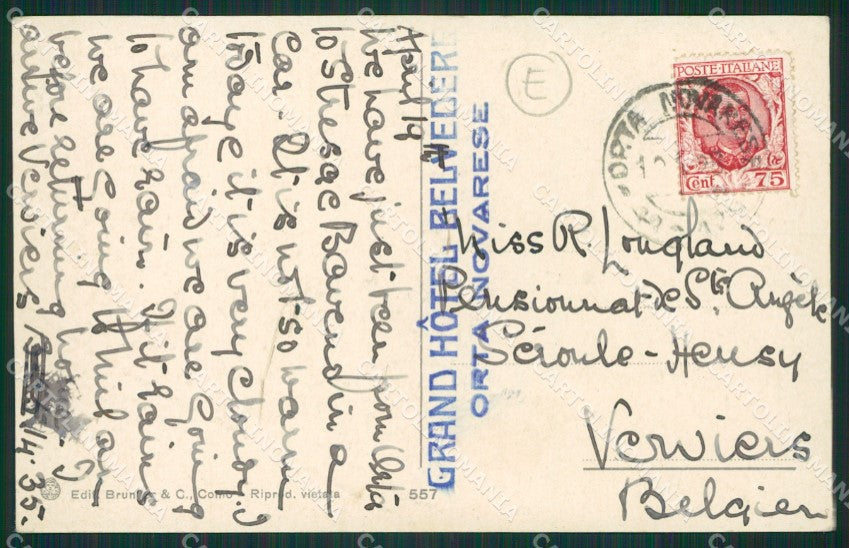 April 19th
We have just been from Orta
to Stresa & Baveno in a
Car. It is not so warm
today & it is very cloudy. I
am afraid we are going
to have rain. If it rains
we are going to Milan
before returning home. I
arrive Verviers
/4.35.
GRAND HÔTEL BELVEDERE
ORTA NOVARESE
E
POSTE ITALIANE
Cent. 75
ORTA NOVARESE
Miss R. Longland
Pensionnat de Ste. Angèle
Séroule-Heusy
Verviers
Belgien
Edit. Brunner & C., Como - Riprod. vietata 557
CARTOLINOMANIA